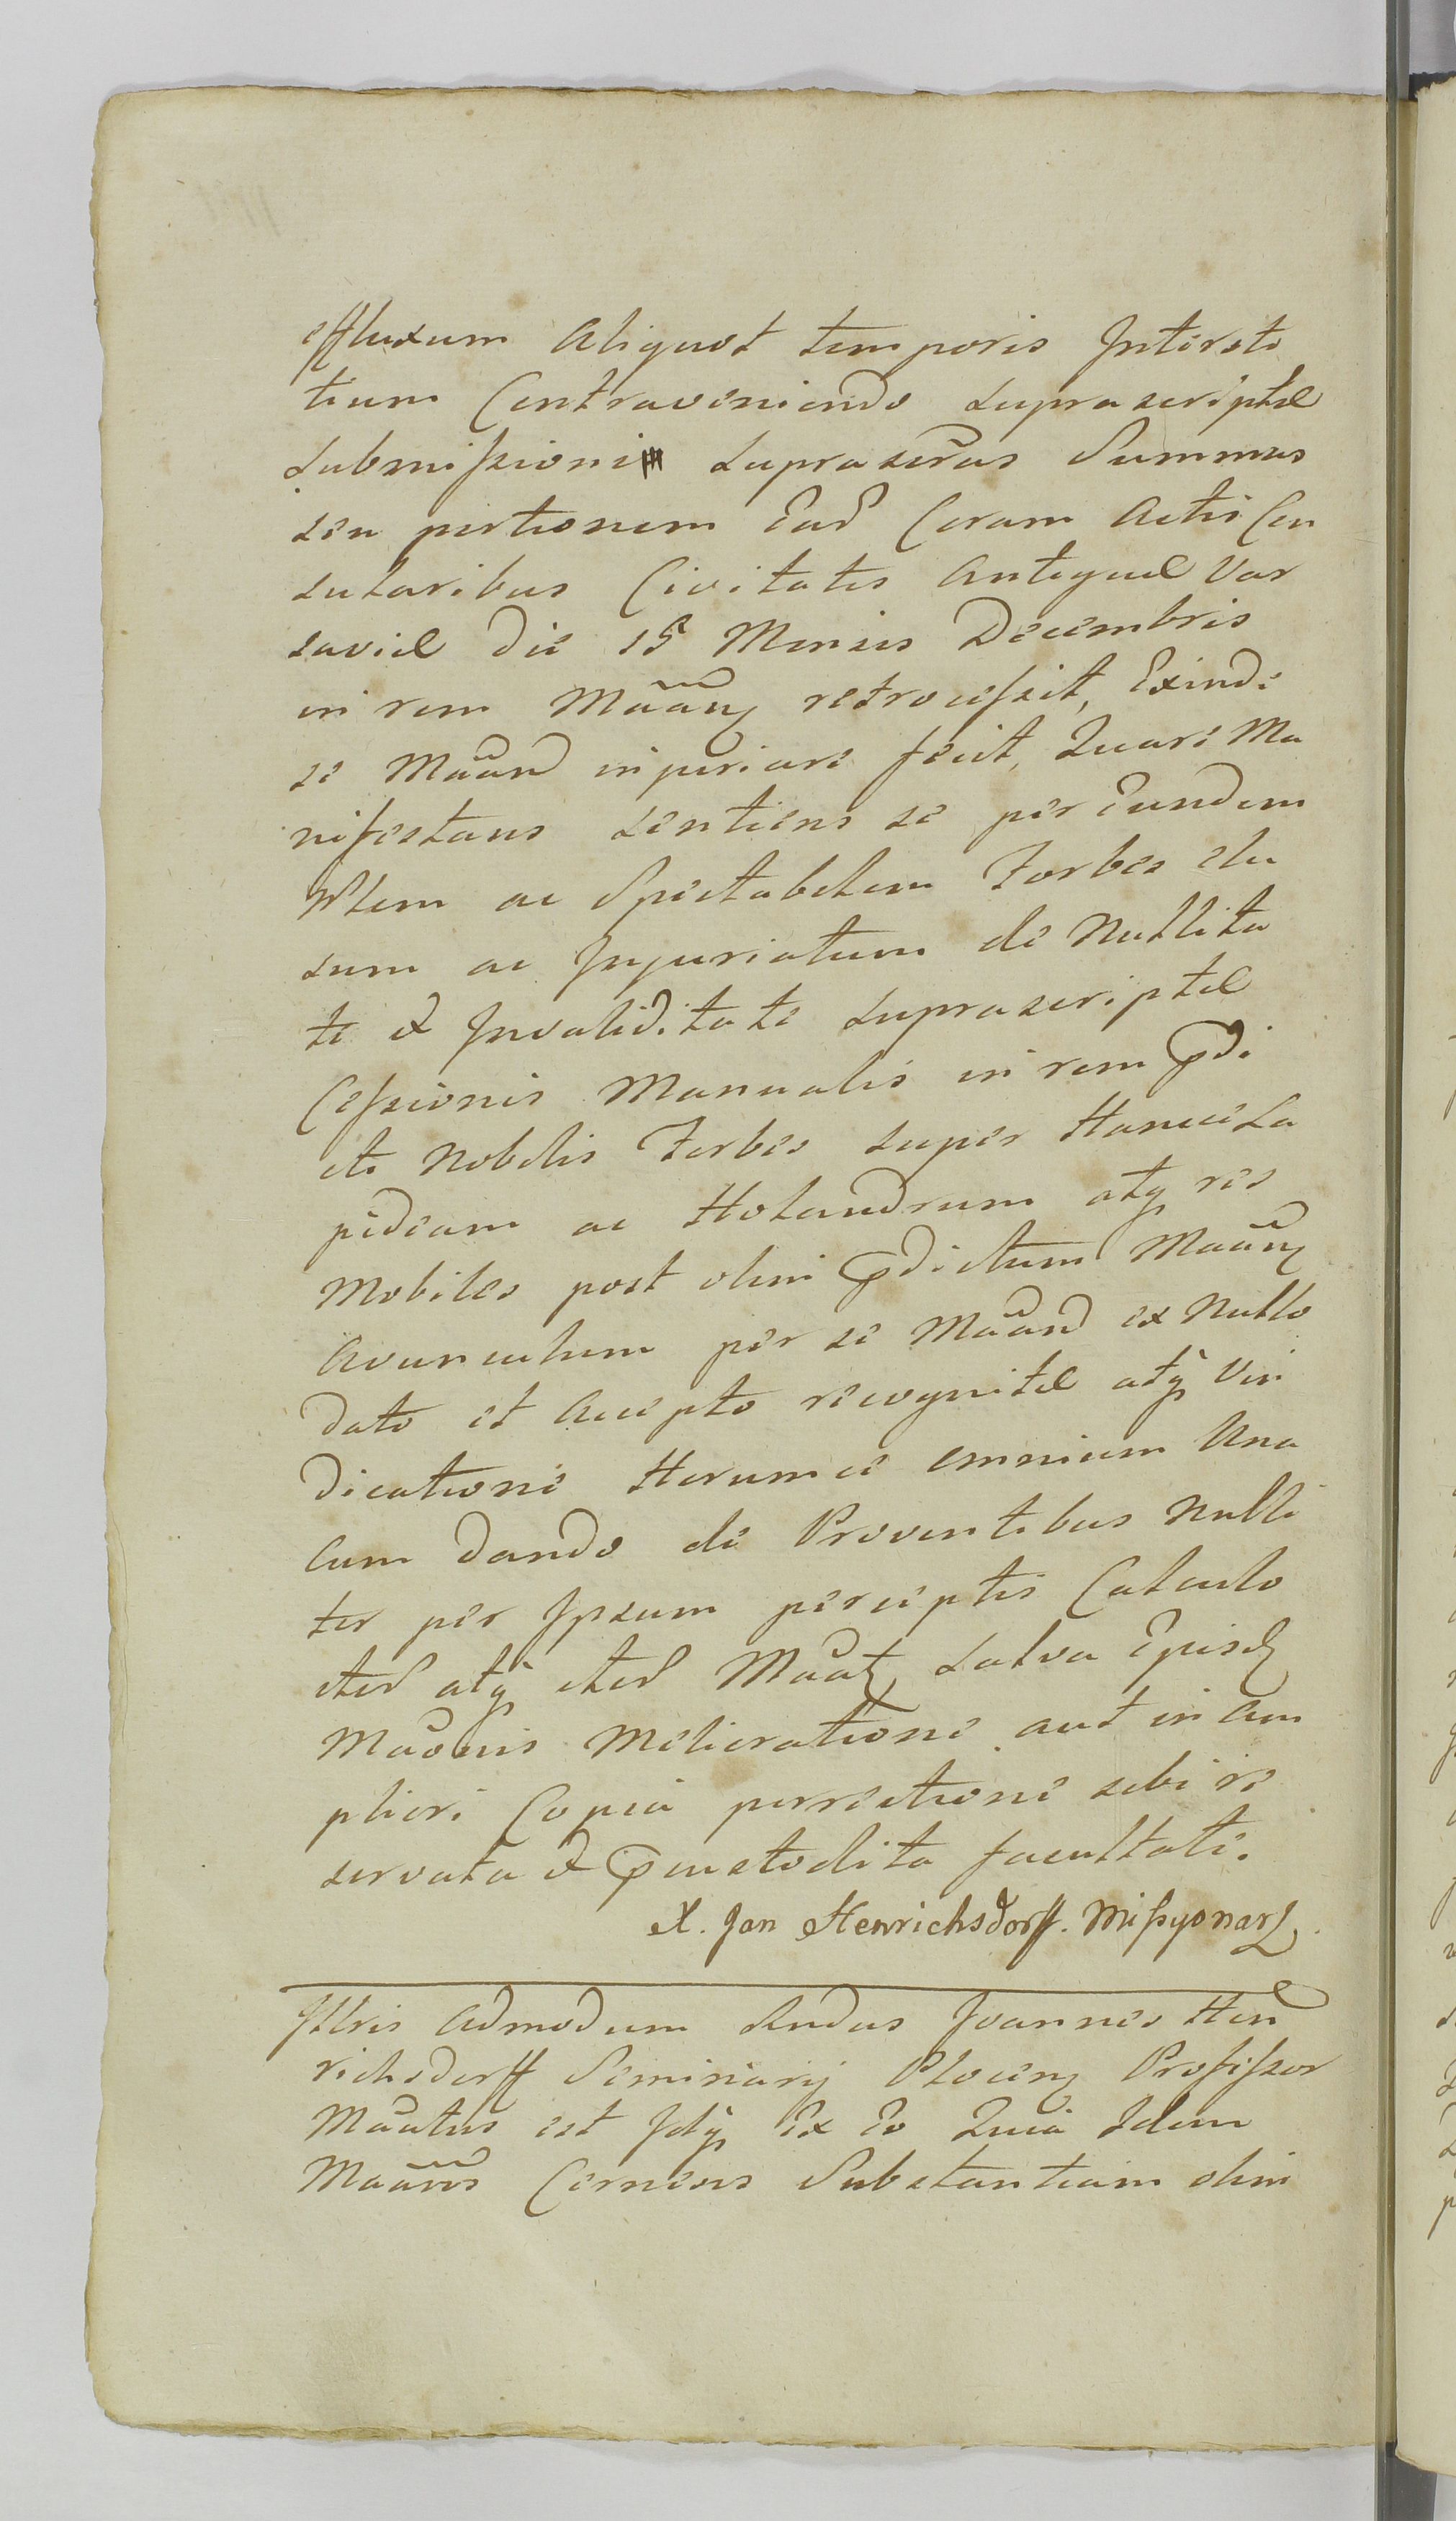 effluxum Aliquot temporis Intersti
tium Contraveniendo supra scriptæ
submissioni suprascr̃as Summas
seu portionem Ead Coram Actis Con
sularibus Civitatis Antiquæ Var
saviæ die 15 Mensis Decembris
in rem Mãan̄ retrocessit, Exinde
se Mãand injuriare fecit, Quare Ma
nifestans sentiens se per Eundem
Nblem ac Spectabilem Forbes elu
sum ac Injuriatum de Nullita
te et Invaliditate suprascriptæ
Cessionis Manualis in rem p̱di
cti Nobilis Forbes super Hancce La
pideam ac Holandrum atq̢ res
Mobiles post olim p̱dictum Mãan̄
Avunculum per se Mãand ex Nullo
dato et Accepto recognitæ atq̢ Vin
dicatione Horumce omnium Una
cum dando de Proventibus Nulli
ter per Ipsum perceptis Calculo
ited atq̢ ited Mãat̢ salva Ejusd̢
Mãonis Melioratione aut in am
pliori Copia porrectione sibi re
servata et p̱custodita facultate.
X. Jan Henrichsdorff. Missyonarz
Illris Admodum Rndus Joannes Hen
richsdorff Seminarij Plocen̄ Professor
Mãatus est Idq̢ Ex Eo Quia Idem
Mãans Cernens Substantiam olim